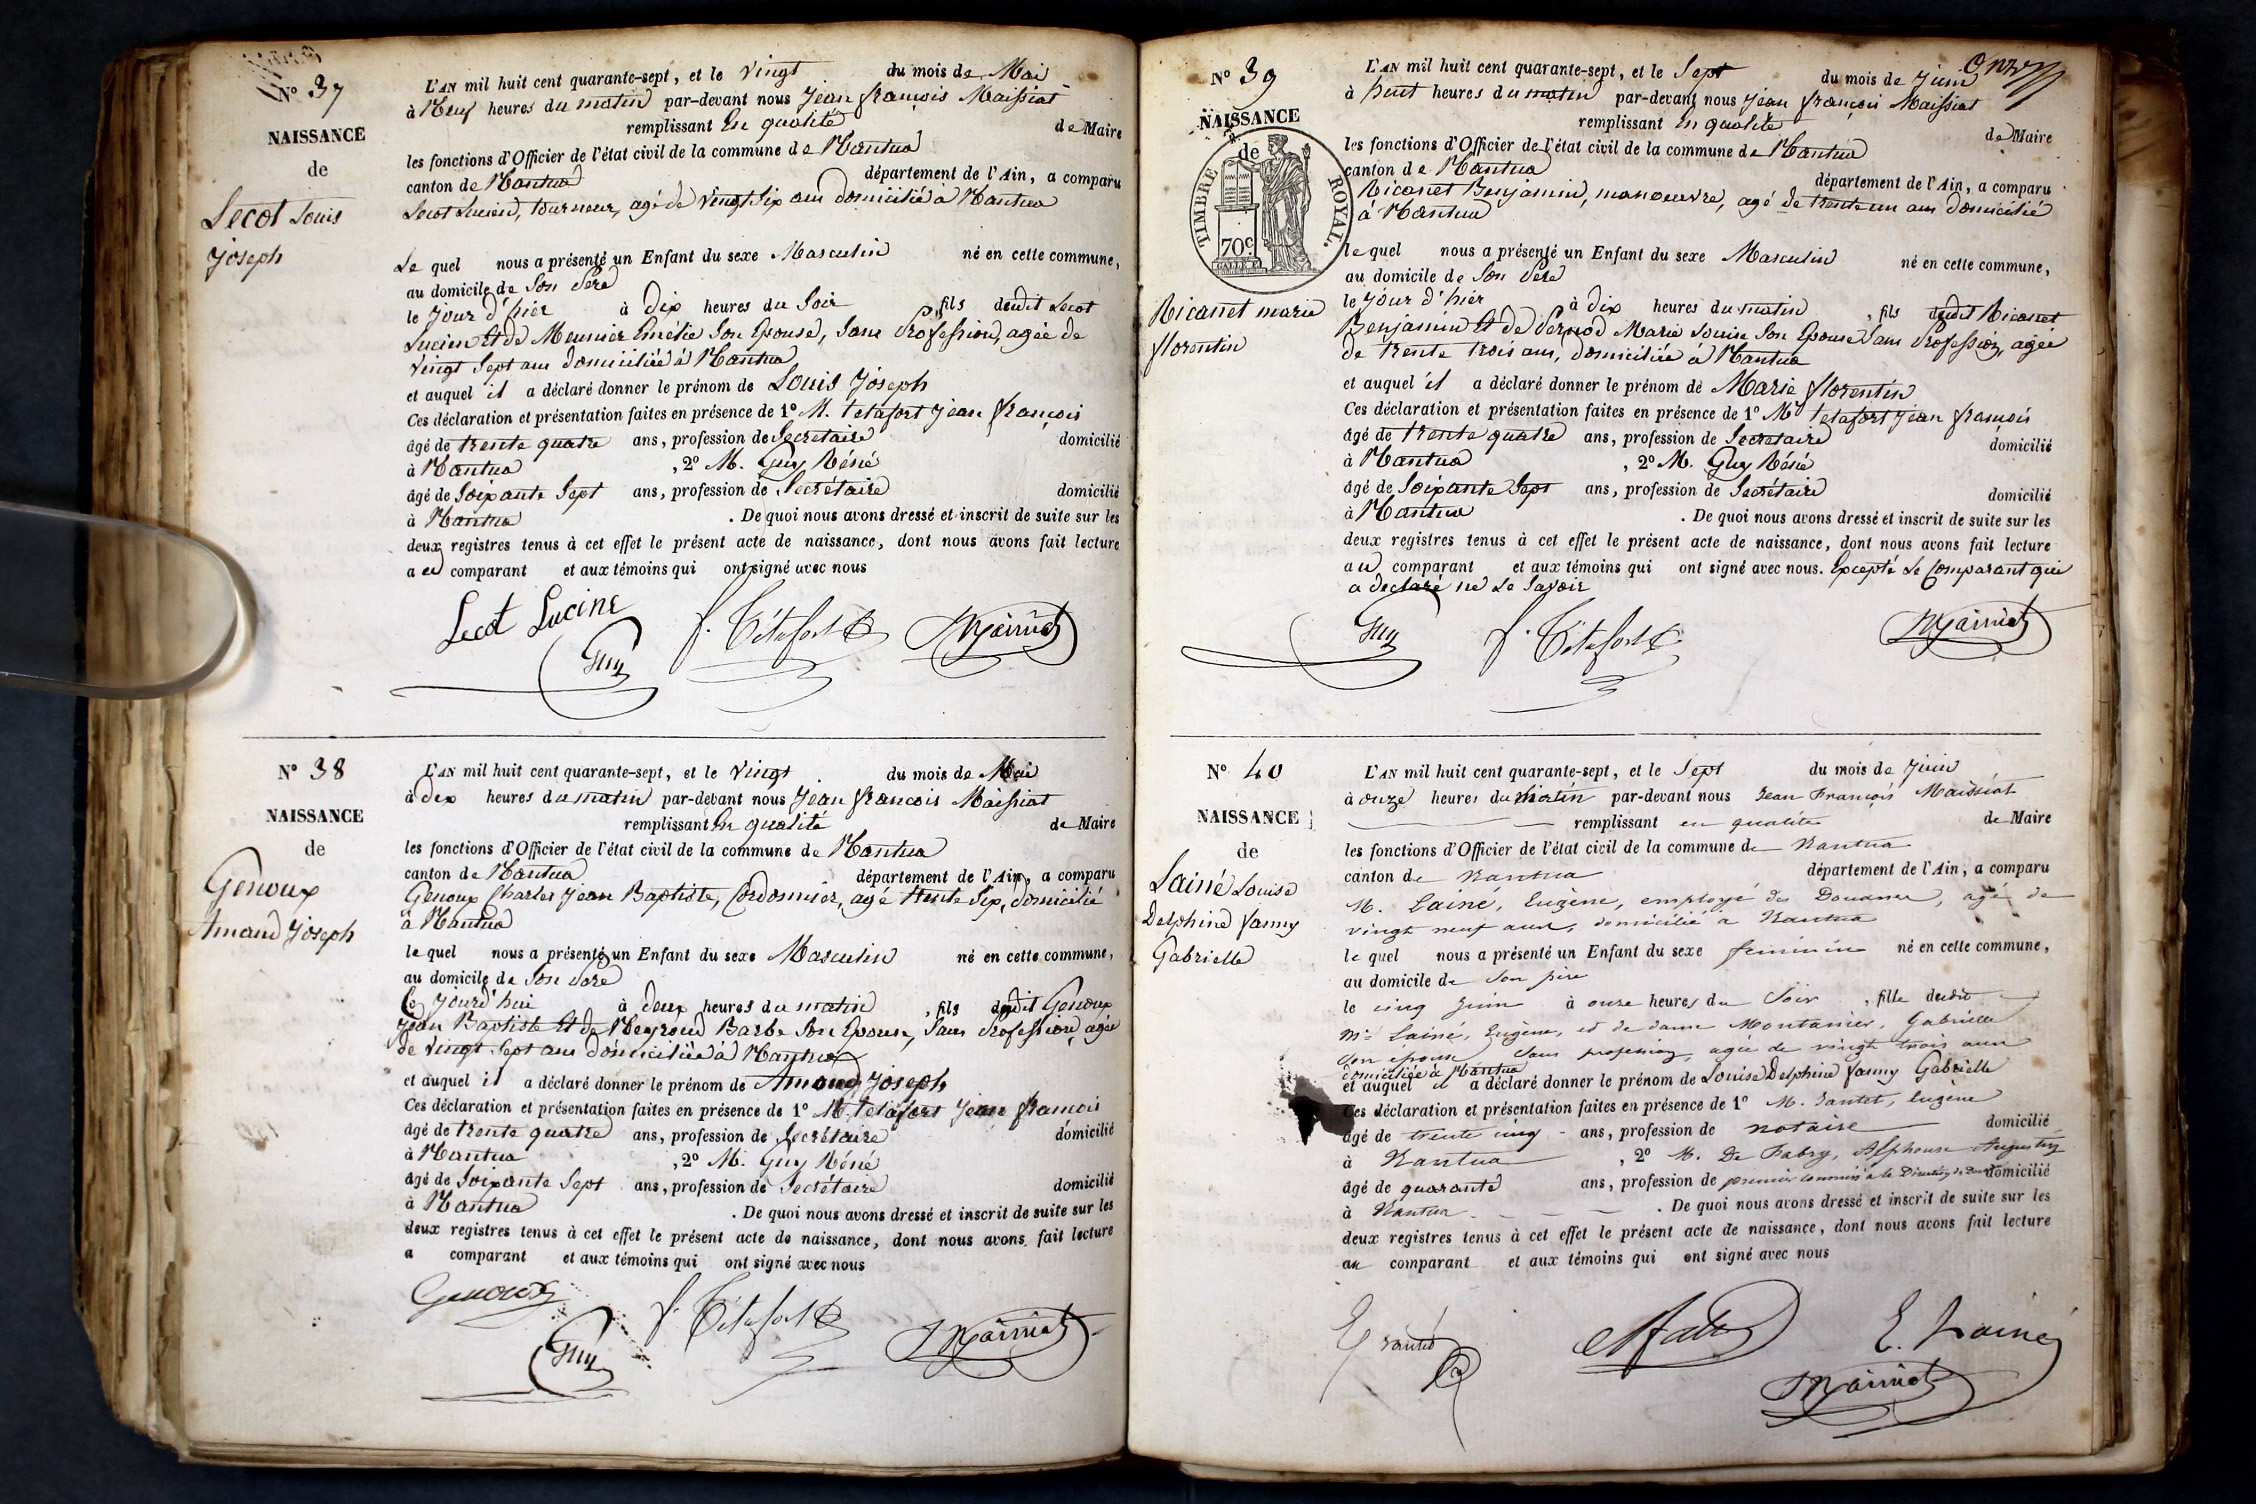 N° 37
NAISSANCE
de
Lecot Louis
Joseph
L'AN mil huit cent quarante-sept, et le Vingt du mois de Mai
à Neuf heures du matin par-devant nous Jean françois Maissiat
remplissant En qualité de Maire
les fonctions d'Officier de l'état civil de la commune de Nantua
canton de Nantua département de l'Ain, a comparu
Lecot Lucien, tourneur, agé de Vingt Six ans domicilié à Nantua
Le quel nous a présenté un Enfant du sexe Masculin né en cette commune,
au domicile de Son Père
le jour d'hier à Dix heures du Soir , fils dudit Lecot
Lucien Et de Meunier Emélie Son Epouse, Sans Profession, agée de
Vingt Sept ans domiciliée à Nantua
et auquel il a déclaré donner le prénom de Louis Joseph
Ces déclaration et présentation faites en présence de 1° M. Tetafort Jean françois
âgé de trente quatre ans, profession de Secretaire domicilié
à Nantua , 2° M. Guy Réné
âgé de Soixante Sept ans, profession de Secrétaire domicilié
à Nantua . De quoi nous avons dressé et inscrit de suite sur les
deux registres tenus à cet effet le présent acte de naissance, dont nous avons fait lecture
au comparant et aux témoins qui ont signé avec nous
Lecot Lucine
Guy f. Tétafort Maissiat
N° 38
NAISSANCE
de
Genoux
Amand Joseph
L'AN mil huit cent quarante-sept, et le Vingt du mois de Mai
à dix heures du matin par-devant nous Jean francois Maissiat
remplissant En qualité de Maire
les fonctions d'Officier de l'état civil de la commune de Nantua
canton de Nantua département de l'Ain, a comparu
Genoux Charles Jean Baptiste, Cordonnier, agé trente Six, domicilié
à Nantua
le quel nous a présenté un Enfant du sexe Masculin né en cette commune,
au domicile de Son Père
Ce jourd'hui à deux heures du matin , fils dudit Genoux
Jean Baptiste Et de Neyroud Barbe Son Epouse, Sans Profession, agée
de Vingt Sept ans domiciliée à Nantua
et auquel il a déclaré donner le prénom de Amand Joseph
Ces déclaration et présentation faites en présence de 1° M. Tetafort Jean francois
âgé de trente quatre ans, profession de Secrétaire domicilié
à Nantua , 2° M. Guy Réné
âgé de Soixante Sept ans, profession de Secrétaire domicilié
à Nantua . De quoi nous avons dressé et inscrit de suite sur les
deux registres tenus à cet effet le présent acte de naissance, dont nous avons fait lecture
a comparant et aux témoins qui ont signé avec nous
Genoux
Guy f. Tétafort Maissiat
Onze
N° 39
NAISSANCE
de
TIMBRE ROYAL.
70c
Ricanet marie
florentin
L'AN mil huit cent quarante-sept, et le Sept du mois de Juin
à huit heures du matin par-devant nous Jean françois Maissiat
remplissant En qualité de Maire
les fonctions d'Officier de l'état civil de la commune de Nantua
canton de Nantua département de l'Ain, a comparu
Ricanet Benjamin, manoeuvre, agé de trente un ans domicilié
à Nantua
le quel nous a présenté un Enfant du sexe Masculin né en cette commune,
au domicile de Son Père
le jour d'hier à dix heures du matin , fils dudit Ricanet
Benjamin Et de Pernod Marie Louise Son Epouse Sans Profession, agée
de trente trois ans, domiciliée à Nantua
et auquel il a déclaré donner le prénom de Marie florentin
Ces déclaration et présentation faites en présence de 1° Mr Tetafort Jean françois
âgé de trente quatre ans, profession de Secretaire domicilié
à Nantua , 2° M. Guy Réné
âgé de Soixante Sept ans, profession de Secrétaire domicilié
à Nantua . De quoi nous avons dressé et inscrit de suite sur les
deux registres tenus à cet effet le présent acte de naissance, dont nous avons fait lecture
au comparant et aux témoins qui ont signé avec nous. Excepté Le Comparant qui
a declaré ne Le Savoir
Guy f. Tétafort Maissiat
N° 40
NAISSANCE
de
Lainé Louise
Delphine fanny
Gabrielle
L'AN mil huit cent quarante-sept, et le Sept du mois de Juin
à onze heures du matin par-devant nous Jean François Maissiat
remplissant en qualité de Maire
les fonctions d'Officier de l'état civil de la commune de Nantua
canton de Nantua département de l'Ain, a comparu
M. Lainé, Eugène, employé des Douanes, agé de
vingt neuf ans, domicilié à Nantua
le quel nous a présenté un Enfant du sexe feminin né en cette commune,
au domicile de Son père
le cinq Juin à onze heures du Soir , fille dudit
Mr Lainé, Eugène, et de dame Montanier, Gabrielle
Son épouse Sans profession, agée de vingt trois ans
domiciliée à Nantua
et auquel il a déclaré donner le prénom de Louise Delphine fanny Gabrielle
Ces déclaration et présentation faites en présence de 1° M. Santet, Eugène
âgé de trente cinq ans, profession de notaire domicilié
à Nantua , 2° M. De Fabry, Alphonse Augustin
âgé de quarante ans, profession de premier commis à la Direction des Douanes domicilié
à Nantua . De quoi nous avons dressé et inscrit de suite sur les
deux registres tenus à cet effet le présent acte de naissance, dont nous avons fait lecture
au comparant et aux témoins qui ont signé avec nous
E. Lainé
Maissiat